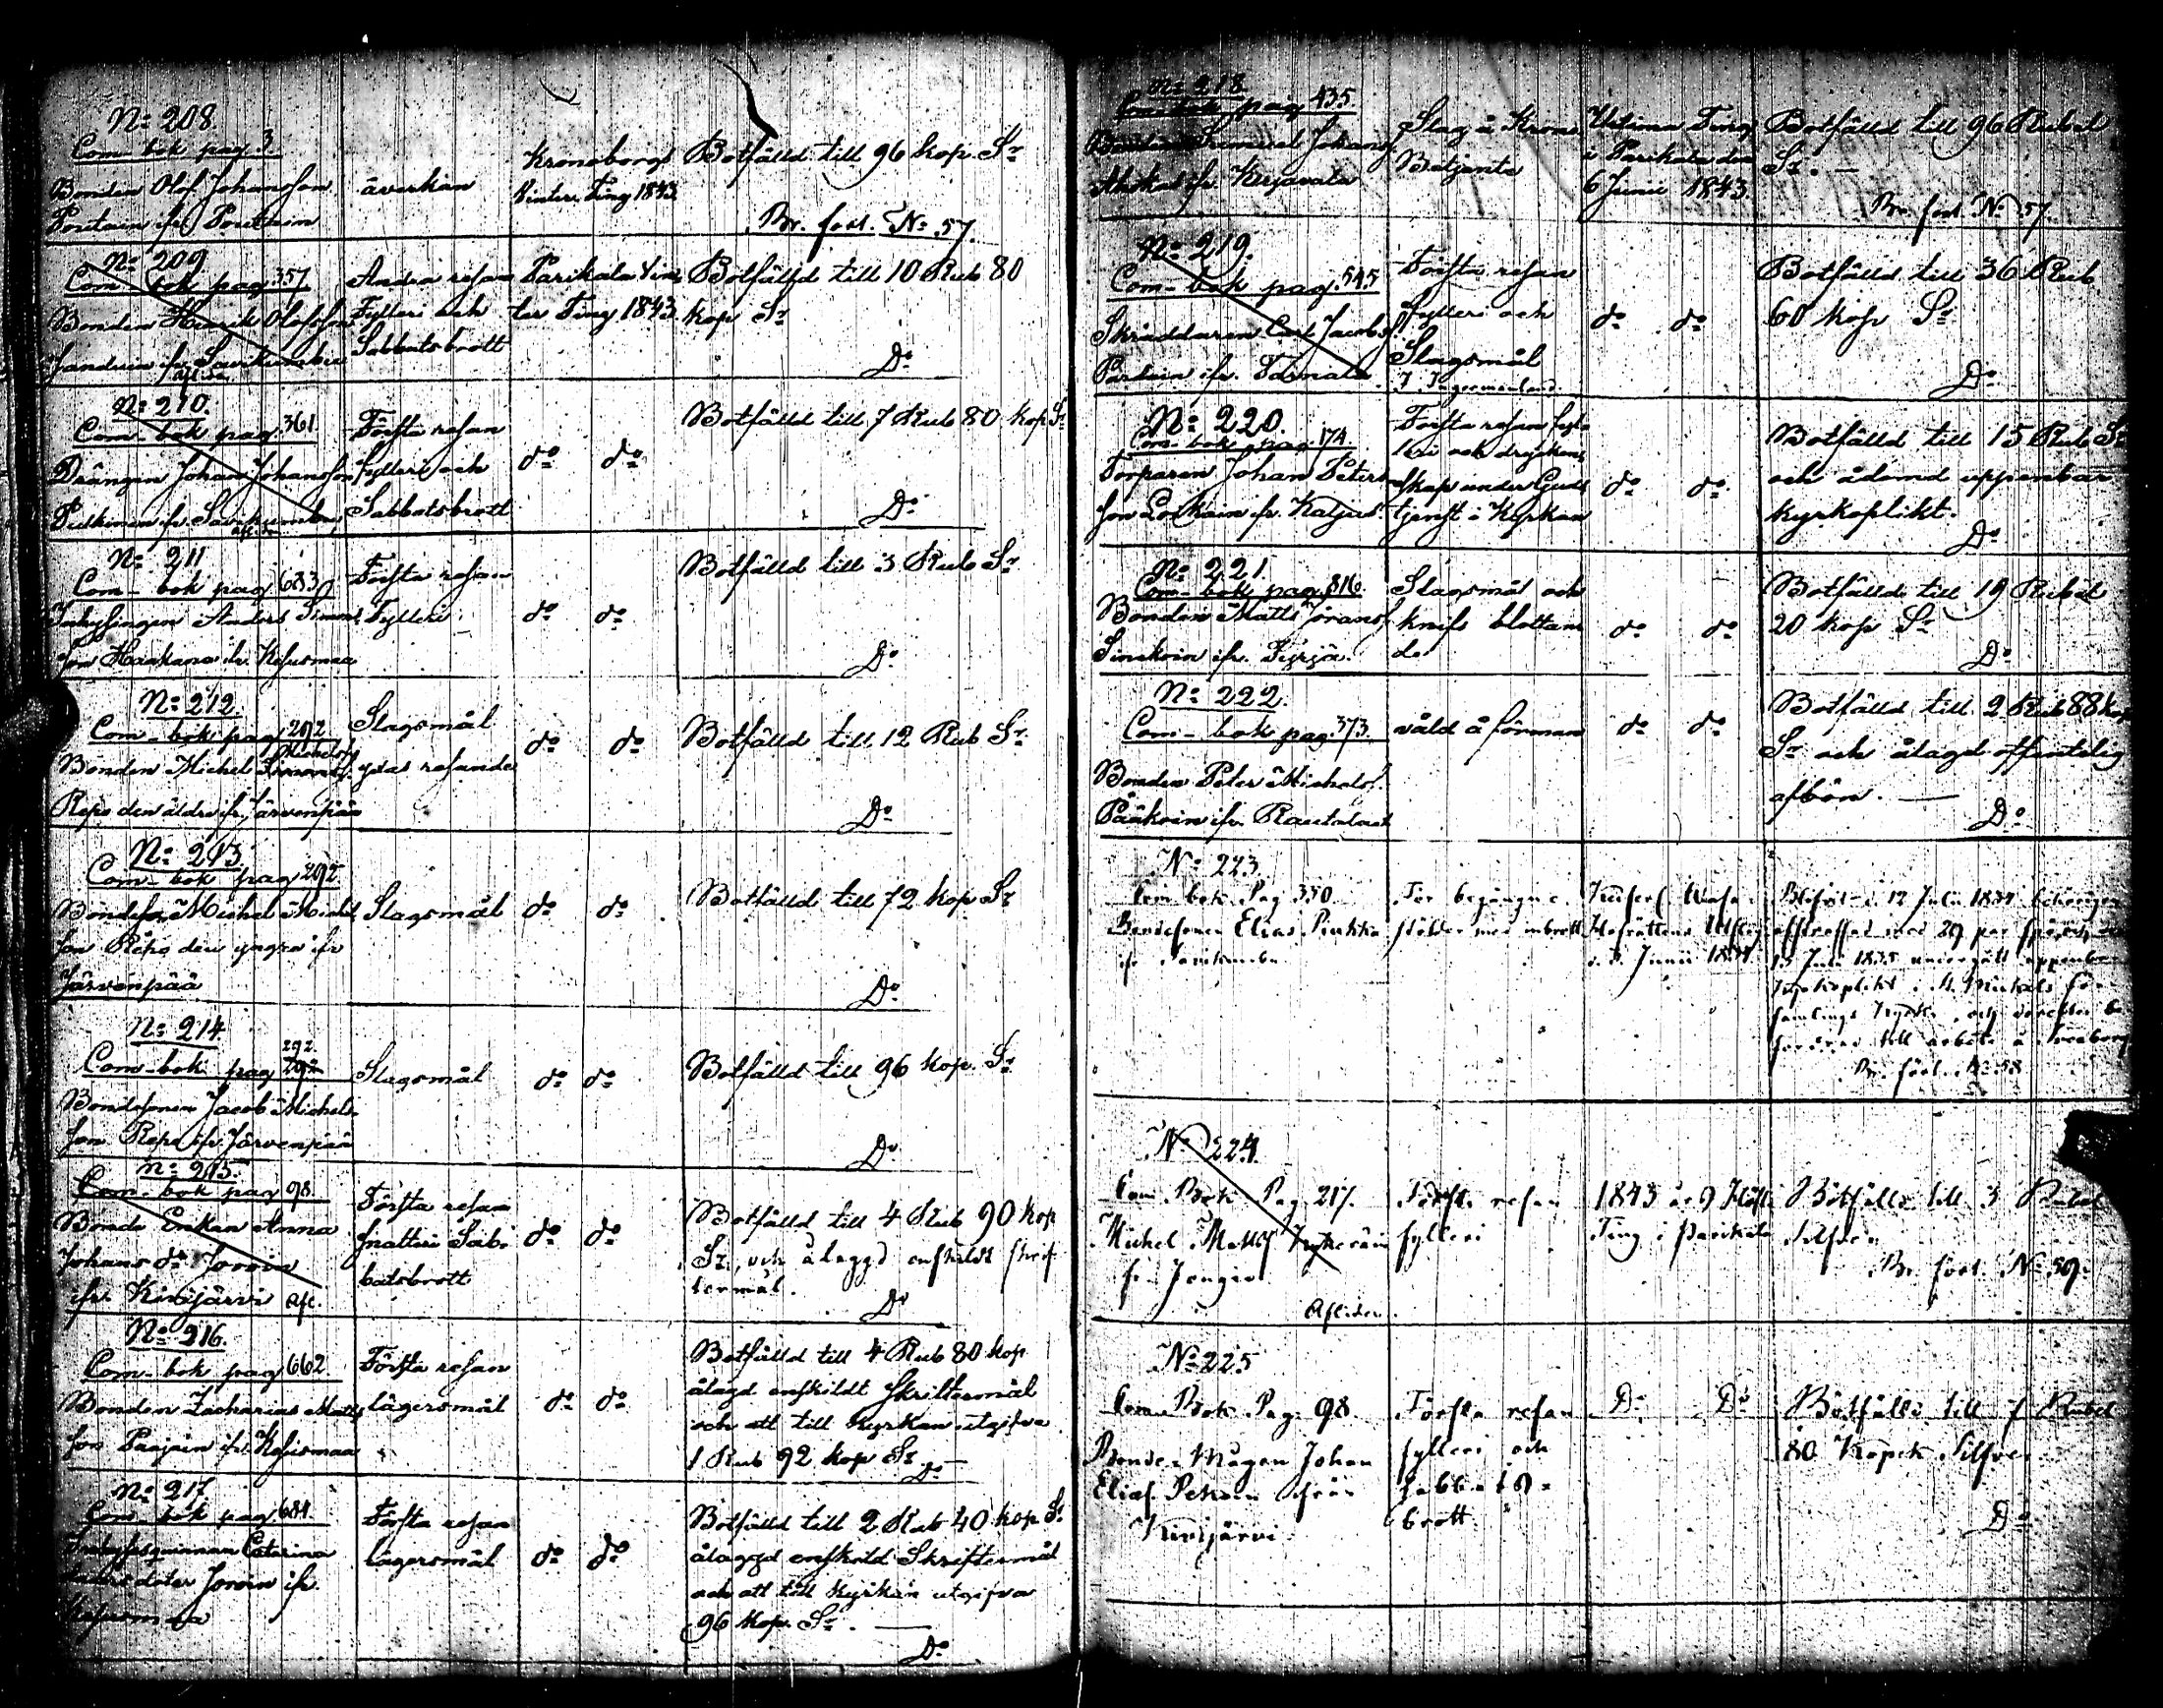 No 208.
Com-bok pag. 3
Bonden Olof Johansson
Poutain ifr. Poutain
åverkan
Kronoborgs
Vinter Ting 1843.
Botfälld till 96 kop. Sr
Br. fört. No 57.
No 209
Com-bok pag. 357
Bonden Henrik Olofsson
ifr. Savikumbu
Andra resan
Fylleri och
Sabbatsbrott
Parikala Vin
ter Ting 1843.
Botfälld till 10 Rub 80
kop Sr
Do
No 210.
Com-bok pag. 361
Drängen Johan Johansson
ifr. Savikumbu
Första resan
fylleri och
Sabbatsbrott
do do
Botfälld till 7 Rub 80 kop Sr
Do
No 211
Com-bok pag 683
Inhysingen Anders Simons
son Haakana ifr. Kesusmaa
Första resan
Fylleri
do do
Botfälld till 3 Rub Sr
Do
No 212.
Com-bok pag 292
Bonden Michel
Repo den äldre ifr. Järvenpää
Slagsmål
do do
Botfälld till 12 Rub Sr
Do
No 213.
Com-bok pag 292
Bondeson Michel Michel
son Repo den yngre ifr
Järvenpää
Slagsmål
do do
Botfälld till 72 kop Sr
Do
No 214
292
Com-bok pag
Bondesonen Jacob Michels
son Repo ifr. Järvenpää
Slagsmål
do do
Botfälld till 96 kop. Sr
Do
No 215.
Com-bok pag 98.
Bonde Enkan Anna
Johans dr Jovoin
ifr. Kinijärvi Afl.
Första resan
snatteri Sab-
batsbrott
do do
Botfälld till 4 Rub 90 kop
Sr, och ålaggd enskildt skrif
termål.
Do
No 216.
Com-bok pag 662.
Bonden Zacharias Matts
son Paajain ifr. Kesusmaa
Första resan
lägersmål
do do
Botfälld till 4 Rub 80 kop
ålagd enskildt Skriftermål
och att till Kyrkan utgifva
1 Rub 92 kop Sr
Do
No 217
Com-bok pag. 684.
Inhysesqvinnan Catarina
doter Jovoin ifr.
Första resan
lägersmål
do do
Botfälld till 2 Rub 40 kop Sr
ålaggd enskild Skriftermål
och att till Kyrkan utgifva
96 kop. Sr.
Do
No 218.
Com-bok pag 435.
Bonden Simuel Johans
ifr. Kerjavala
Slag å Krono
Betjente
Urtima Ting
i Parikala den
6 Junii 1843.
Botfälld till 96 Rubel
Sr.
Br. fört. No 57.
No 219.
Com-bok pag. 545
Skräddaren Carl Jacobs
ifr. Tarnala
Första resan
fylleri och
Slagsmål
I Ingermanland.
do do
Botfälld till 36 Rub.
60 kop Sr
Do
No 220.
Com-bok pag. 174.
Torparen Johan Peters
son ifr. Kaljus.
Första resan fyl-
leri och drycken
skap under Guds
tjenst i Kyrkan
do do
Botfälld till 15 Rub Sr
och ådömd uppenbar
kyrkoplikt.
Do
No 221.
Com-bok pag. 816.
Bonden Matts Göranss.
Sinkoin ifr. Tyrjä.
Slagsmål och
knifs blottan
de
do do
Botfälld till 19 Rubel
20 kop Sr
Do
No 222.
Com-bok pag. 373.
Bonden Peter Michels.
Pääkoin ifr. Rautalaht
våld å förman
do do
Botfälld till 2 Rub 88 kop
Sr och ålagd offentelig
afbön.
Do
No 223.
Com-bok Pag 350.
Bondesonen Elias
ifr Savikumbu
För begångne
stölder med inbrott
Keiserl. Wasa
Hofrättens Utslag
d. 3. Junii 1834
12 Julii 1834
afstraffad med 29 par spö, och
Julii 1835 undergått uppenbar
kyrkoplikt i St Michels för-
samlings kyrka, och derefter be-
fordras till arbete å Sveaborg
Br. fört. No 58
No 224.
Com. Bok Pag 217.
Michel Matts
fr.
Afliden.
Första resan
fylleri
1843 års Höst
Ting i Parikala
Bötfälld till 3 Rubel
Silfver
Br. fört. No 59.
No 225
Com. Bok Pag. 98.
Bonde Mågen Johan
Elias. ifrån
Kinijärvi
Första resan
fylleri och
sabbats-
brott
Do Do
Bötfälld till 7 Rubel
80 Kopek Silfver
Do